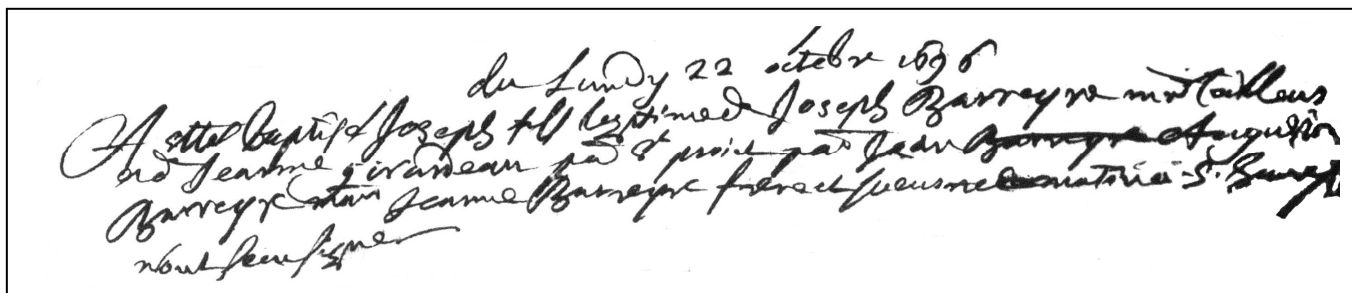 du Lundy 22 octobre 1696
A esté baptisé Joseph fils legitime de Joseph Barreyre mre tailleur
et de Jeanne girardeau par St proict par Jean Barreyre Augustin
Barreyre mar Jeanne Barreyre frere et soeur ne matin a
n'ont sceu signer